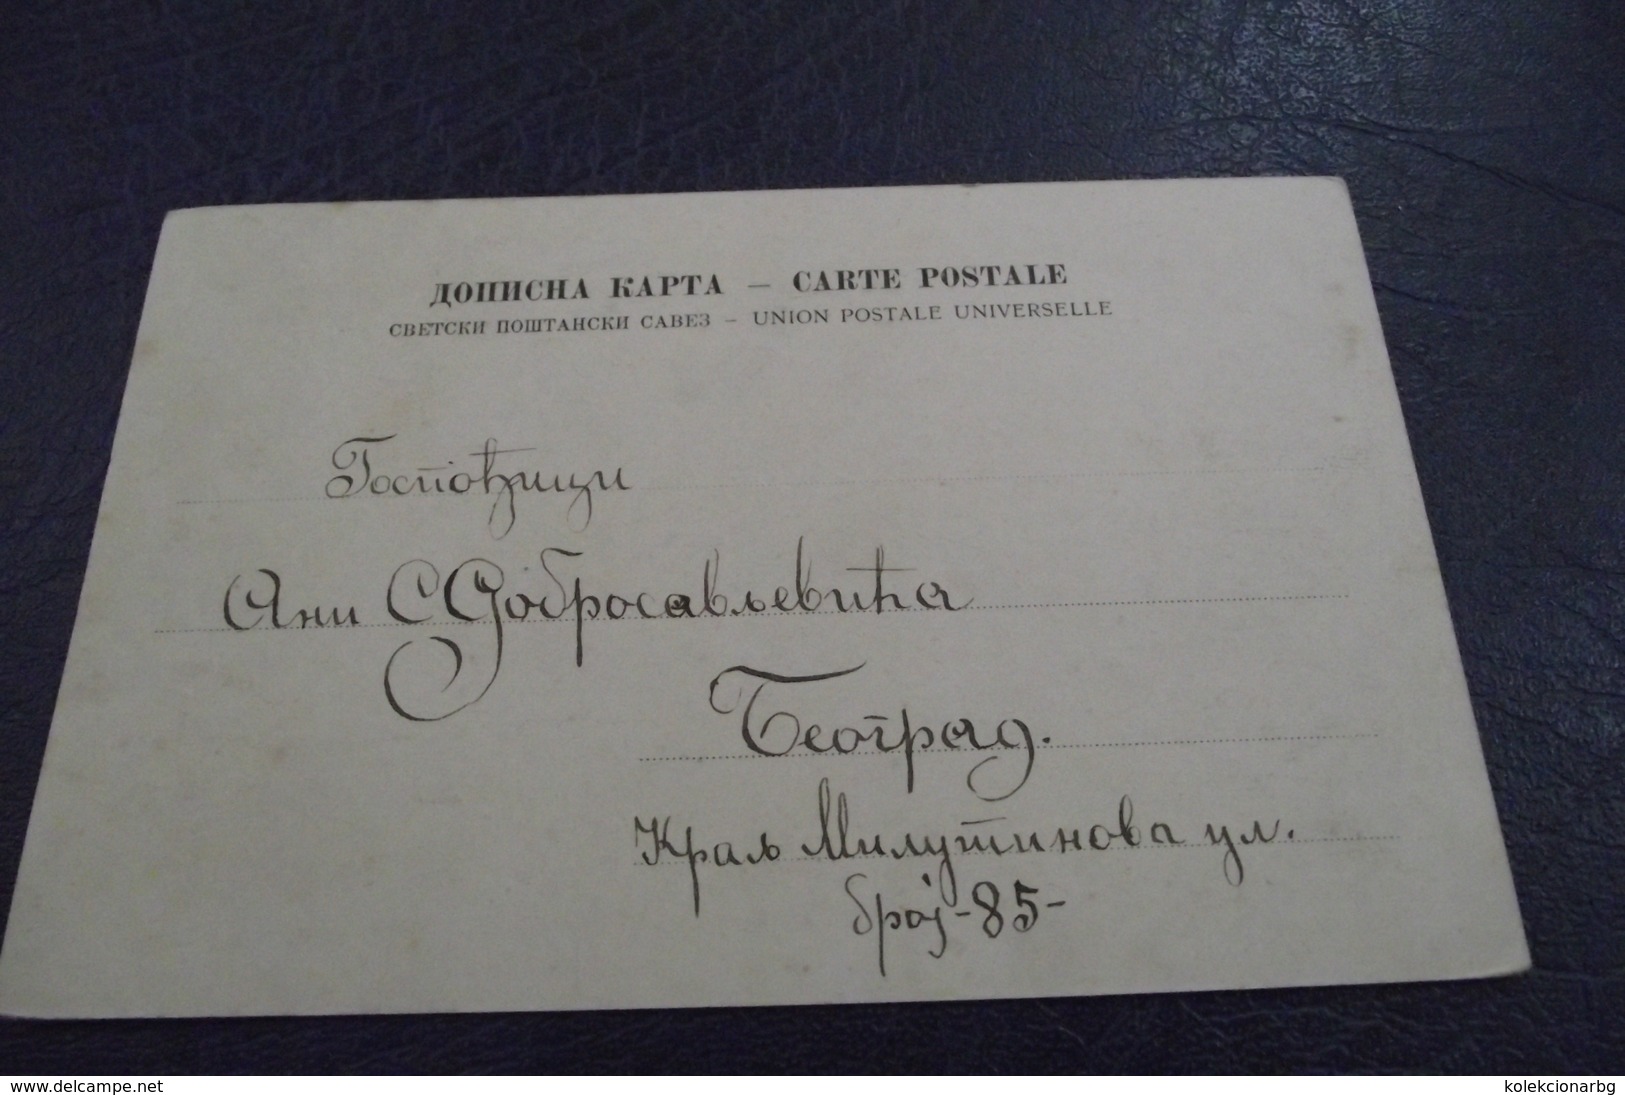 ДОПИСНА КАРТА — CARTE POSTALE
СВЕТСКИ ПОШТАНСКИ САВЕЗ – UNION POSTALE UNIVERSELLE
Госпођици
Ани С Добросављевића
Београд.
Краљ Милутинова ул.
број -85-
www.delcampe.net
kolekcionarbg